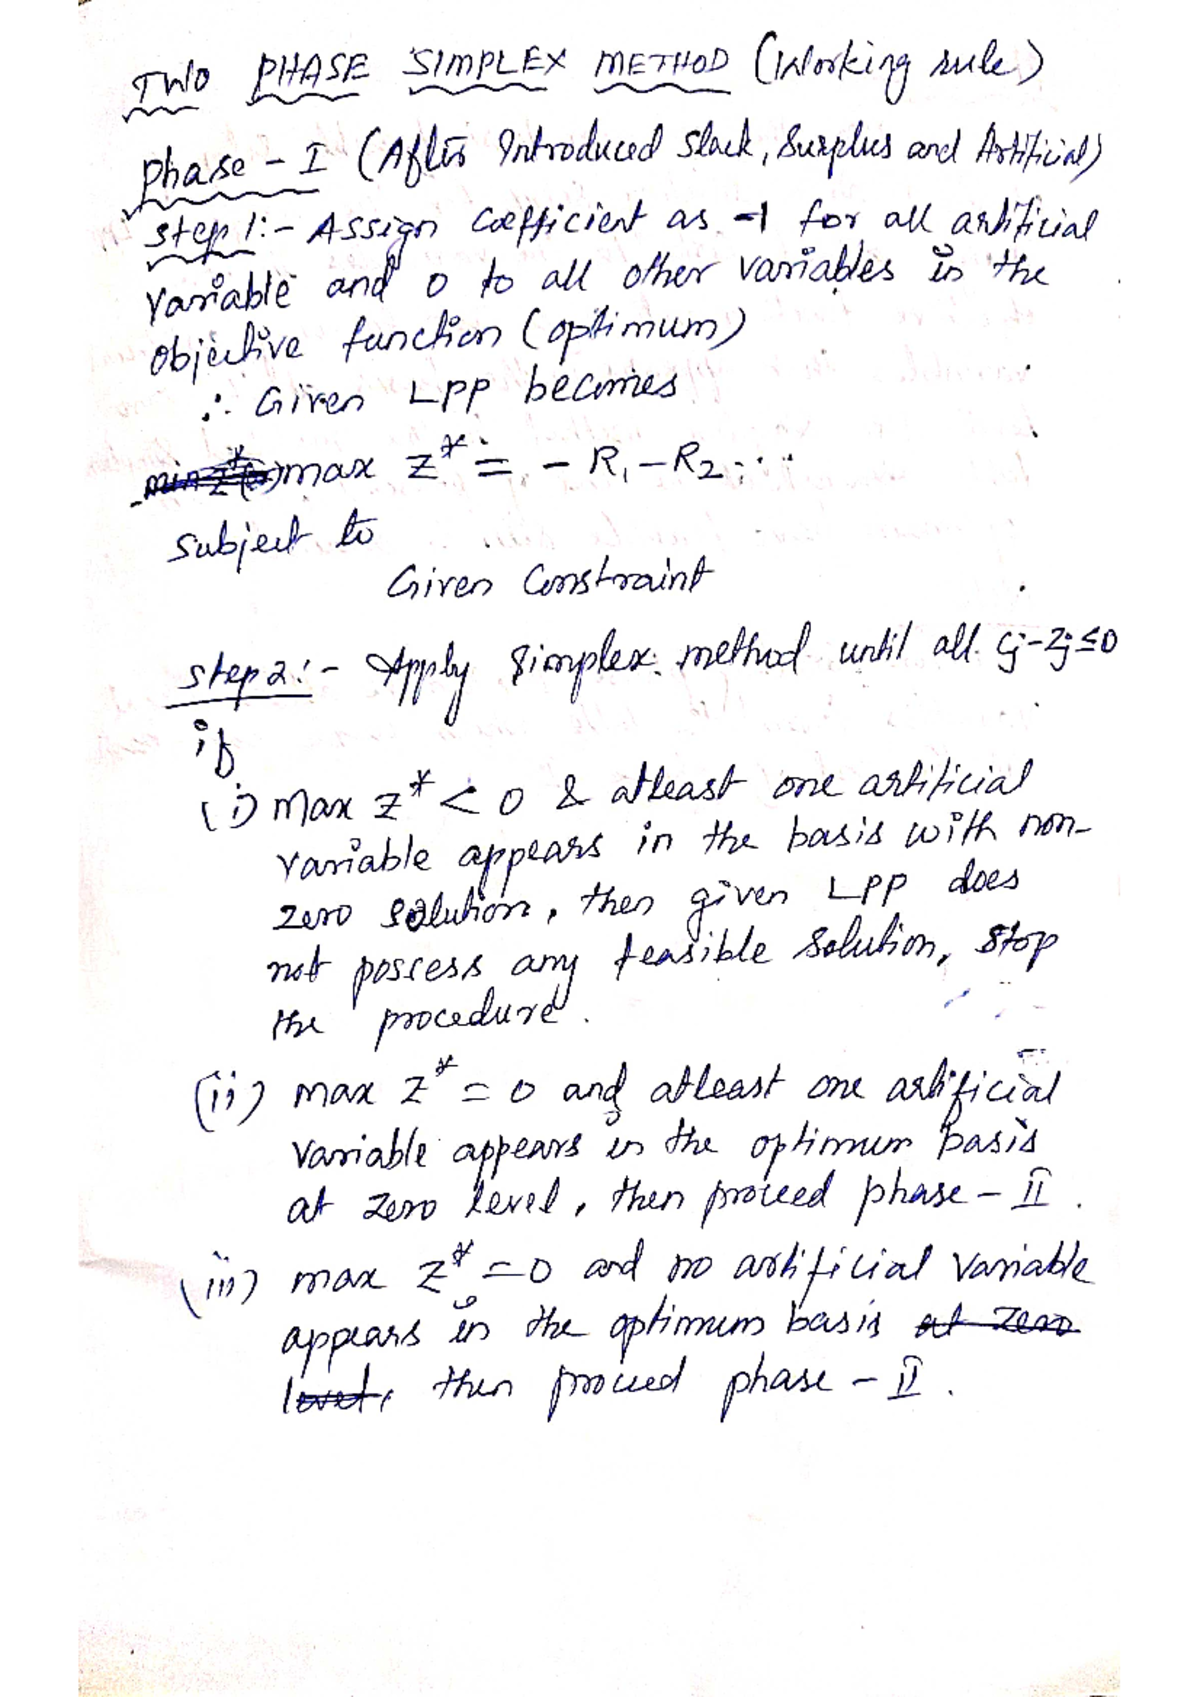 TWO PHASE SIMPLEX METHOD (Working rule)
Phase - I (After Introduced Slack, Surplus and Artificial)
step 1:- Assign coefficient as -1 for all artificial
variable and 0 to all other variables in the
objective function (optimum)
∴ Given LPP becomes
max Z* = - R1 - R2 ...
subject to
Given Constraint
step 2:- Apply simplex method until all Cj-Zj≤0
if
(i) max Z* < 0 & atleast one artificial
variable appears in the basis with non-
zero solution, then given LPP does
not possess any feasible solution, stop
the procedure.
(ii) max Z* = 0 and atleast one artificial
variable appears in the optimum basis
at zero level, then proceed phase - II.
(iii) max Z* = 0 and no artificial variable
appears in the optimum basis at zero
level, then proceed phase - II.